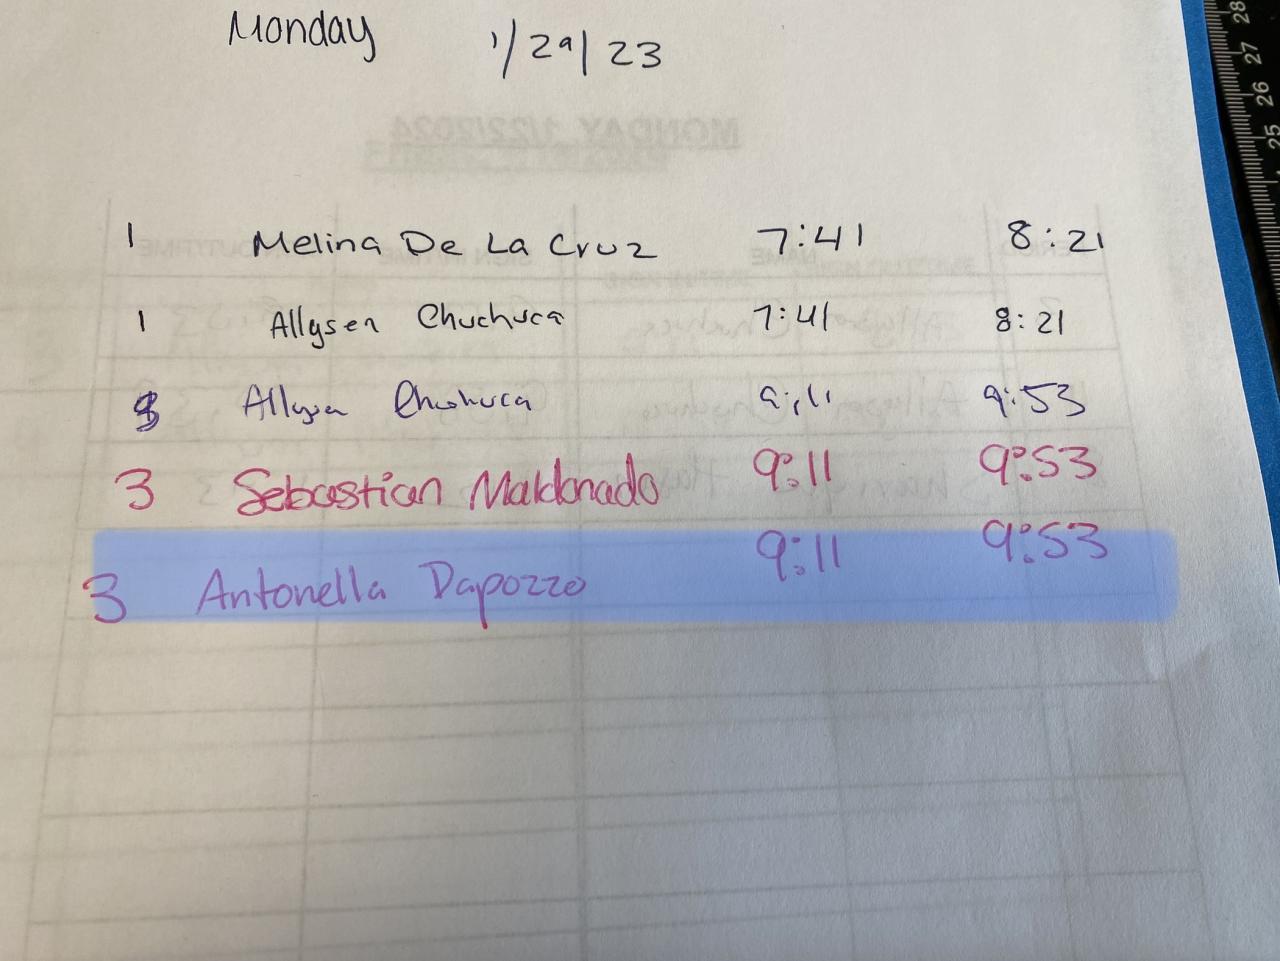 Monday 1/29/23
MONDAY 1/22/2024
1 Melina De La Cruz 7:41 8:21
1 Allysen Chuchuca 7:41 8:21
3 Allysa Chuchuca 9:11 9:53
3 Sebastian Maldonado 9:11 9:53
3 Antonella Dapozzo 9:11 9:53
28
27
26
25